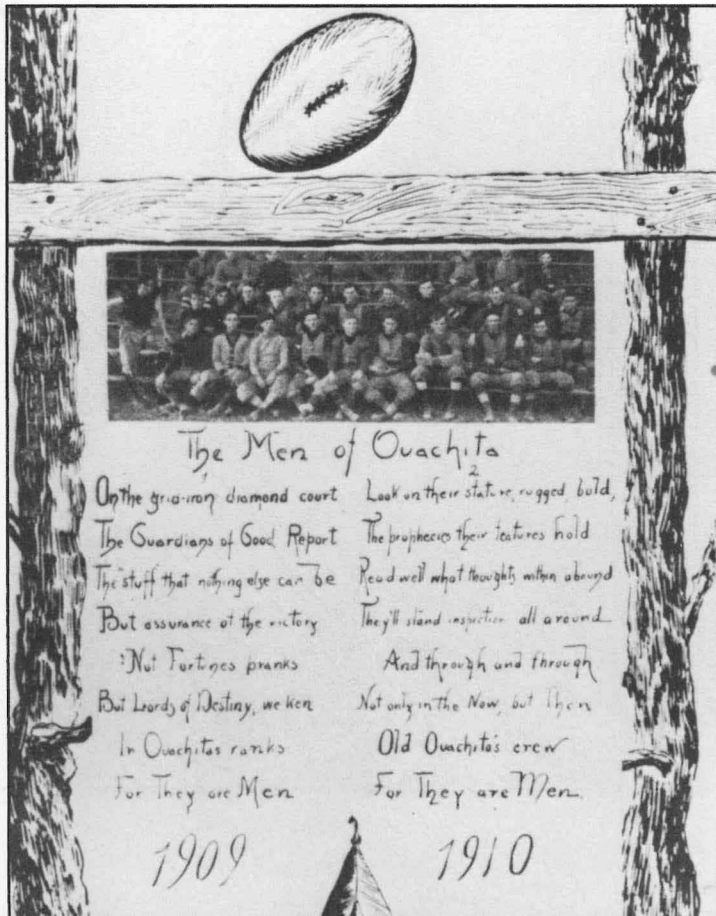 The Men of Ouachita
1
On the grid-iron diamond court
The Guardians of Good Report
The stuff that nothing else can be
But assurance of the victory
Not Fortunes pranks
But Lords of Destiny, we ken
In Ouachitas ranks
For They are Men
2
Look on their stature, rugged, bold,
The prophecies their features hold
Read well what thoughts within abound
They'll stand inspection all around
And through and through
Not only in the Now, but Then
Old Ouachita's crew
For They are Men.
1909 1910